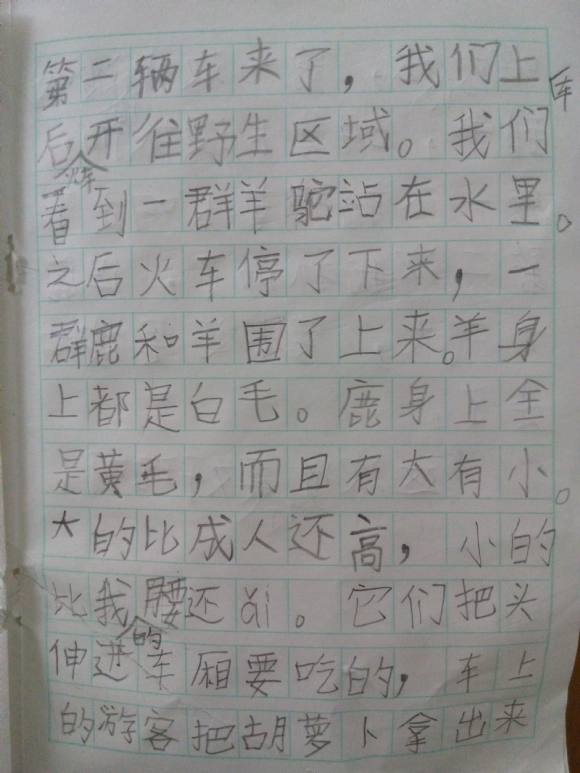 第二辆车来了，我们上车
后火车开往野生区域。我们
看到一群羊驼站在水里。
之后火车停了下来，一
群鹿和羊围了上来。羊身
上都是白毛。鹿身上全
是黄毛，而且有大有小。
大的比成人还高，小的
比我的腰还ǎi。它们把头
伸进车厢要吃的，车上
的游客把胡萝卜拿出来